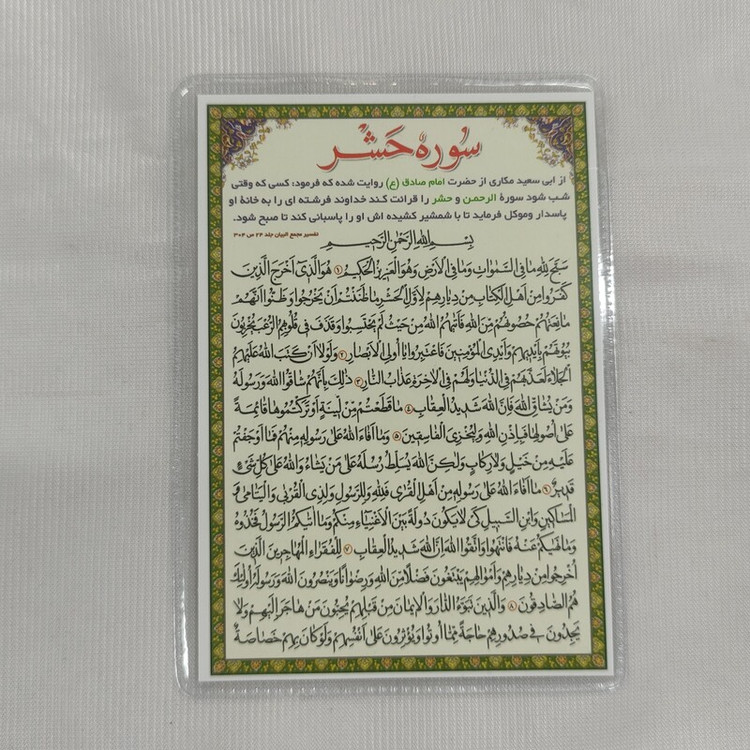 سورهٔ حشر
از ابی سعید مکاری از حضرت امام صادق (ع) روایت شده که فرمود: کسی که وقتی
شب شود سورهٔ الرحمن و حشر را قرائت کند خداوند فرشته ای را به خانهٔ او
پاسدار وموکل فرماید تا با شمشیر کشیده اش او را پاسبانی کند تا صبح شود.
تفسیر مجمع البیان جلد ۲۴ ص ۳۰۴
بِسْمِ اللهِ الرَّحْمنِ الرَّحِیمِ
سَبَّحَ لِلّهِ مَا فِی السَّمٰوَاتِ وَمَا فِی الْأَرْضِ وَهُوَ الْعَزِیزُ الْحَکِیمُ ۱ هُوَ الَّذِی أَخْرَجَ الَّذِینَ
کَفَرُوا مِنْ أَهْلِ الْکِتَابِ مِنْ دِیَارِهِمْ لِأَوَّلِ الْحَشْرِ مَا ظَنَنْتُمْ أَنْ یَخْرُجُوا وَظَنُّوا أَنَّهُمْ
مَانِعَتُهُمْ حُصُونُهُمْ مِنَ اللهِ فَأَتٰیهُمُ اللهُ مِنْ حَیْثُ لَمْ یَحْتَسِبُوا وَقَذَفَ فِی قُلُوبِهِمُ الرُّعْبَ یُخْرِبُونَ
بُیُوتَهُمْ بِأَیْدِیهِمْ وَأَیْدِی الْمُؤْمِنِینَ فَاعْتَبِرُوا یَا أُولِی الْأَبْصَارِ ۲ وَلَوْلَا أَنْ کَتَبَ اللهُ عَلَیْهِمُ
الْجَلَاءَ لَعَذَّبَهُمْ فِی الدُّنْیَا وَلَهُمْ فِی الْآخِرَةِ عَذَابُ النَّارِ ۳ ذٰلِکَ بِأَنَّهُمْ شَاقُّوا اللهَ وَرَسُولَهُ
وَمَنْ یُشَاقِّ اللهَ فَإِنَّ اللهَ شَدِیدُ الْعِقَابِ ۴ مَا قَطَعْتُمْ مِنْ لِینَةٍ أَوْ تَرَکْتُمُوهَا قَائِمَةً
عَلَىٰ أُصُولِهَا فَبِإِذْنِ اللهِ وَلِیُخْزِیَ الْفَاسِقِینَ ۵ وَمَا أَفَاءَ اللهُ عَلَىٰ رَسُولِهِ مِنْهُمْ فَمَا أَوْجَفْتُمْ
عَلَیْهِ مِنْ خَیْلٍ وَلَا رِکَابٍ وَلٰکِنَّ اللهَ یُسَلِّطُ رُسُلَهُ عَلَىٰ مَنْ یَشَاءُ وَاللهُ عَلَىٰ کُلِّ شَیْءٍ
قَدِیرٌ ۶ مَا أَفَاءَ اللهُ عَلَىٰ رَسُولِهِ مِنْ أَهْلِ الْقُرَىٰ فَلِلّهِ وَلِلرَّسُولِ وَلِذِی الْقُرْبَىٰ وَالْیَتَامَىٰ وَ
الْمَسَاکِینِ وَابْنِ السَّبِیلِ کَیْ لَا یَکُونَ دُولَةً بَیْنَ الْأَغْنِیَاءِ مِنْکُمْ وَمَا آتٰیکُمُ الرَّسُولُ فَخُذُوهُ
وَمَا نَهٰیکُمْ عَنْهُ فَانْتَهُوا وَاتَّقُوا اللهَ إِنَّ اللهَ شَدِیدُ الْعِقَابِ ۷ لِلْفُقَرَاءِ الْمُهَاجِرِینَ الَّذِینَ
أُخْرِجُوا مِنْ دِیَارِهِمْ وَأَمْوَالِهِمْ یَبْتَغُونَ فَضْلًا مِنَ اللهِ وَرِضْوَانًا وَیَنْصُرُونَ اللهَ وَرَسُولَهُ أُولٰئِکَ
هُمُ الصَّادِقُونَ ۸ وَالَّذِینَ تَبَوَّءُو الدَّارَ وَالْإِیمَانَ مِنْ قَبْلِهِمْ یُحِبُّونَ مَنْ هَاجَرَ إِلَیْهِمْ وَلَا
یَجِدُونَ فِی صُدُورِهِمْ حَاجَةً مِمَّا أُوتُوا وَیُؤْثِرُونَ عَلَىٰ أَنْفُسِهِمْ وَلَوْ کَانَ بِهِمْ خَصَاصَةٌ